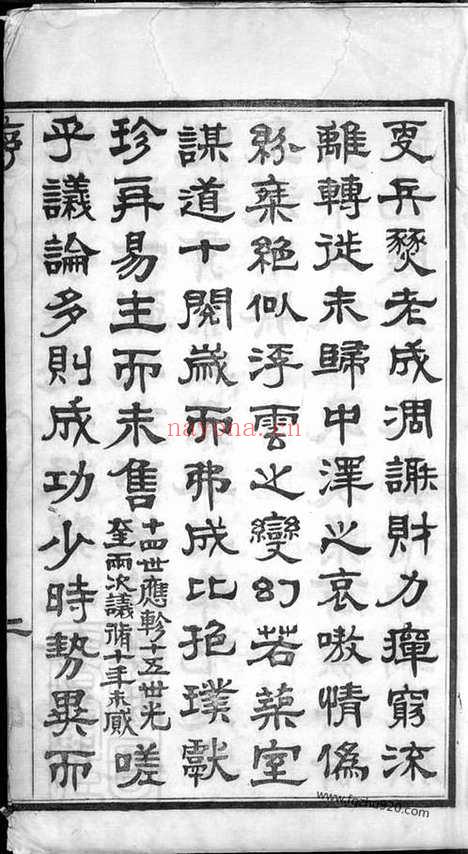 更兵燹老成凋謝財力癉窮流
離轉徙未歸中澤之哀嗷情僞
紛乘絕似浮雲之變幻若築室
謀道十閱歲而弗成比抱璞獻
珍再易主而未售十四世應軫十五世光奎兩次議脩十年未蕆嗟
乎議論多則成功少時勢異而
序
二
nayona.cn
www.fozhu920.com